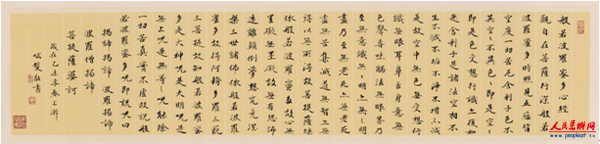 般若波羅蜜多心經
觀自在菩薩行深般若
波羅蜜多時照見五蘊皆
空度一切苦厄舍利子色不
異空空不異色色即是空空
即是色受想行識亦復如
是舍利子是諸法空相不
生不滅不垢不淨不增不減
是故空中無色無受想行
識無眼耳鼻舌身意無
色聲香味觸法無眼界乃
至無意識界無無明亦無無明
盡乃至無老死亦無老死
盡無苦集滅道無智亦無
得以無所得故菩提薩埵
依般若波羅蜜多故心無
罣礙無罣礙故無有恐怖
遠離顛倒夢想究竟涅
槃三世諸佛依般若波羅
蜜多故得阿耨多羅三藐
三菩提故知般若波羅蜜
多是大神咒是大明咒是
無上咒是無等等咒能除
一切苦真實不虛故說般
若波羅蜜多咒即說咒曰
揭諦揭諦 波羅揭諦
波羅僧揭諦
菩提薩婆訶
歲在乙未年春上澣
敬書
人民美术网
www.peopleart.tv